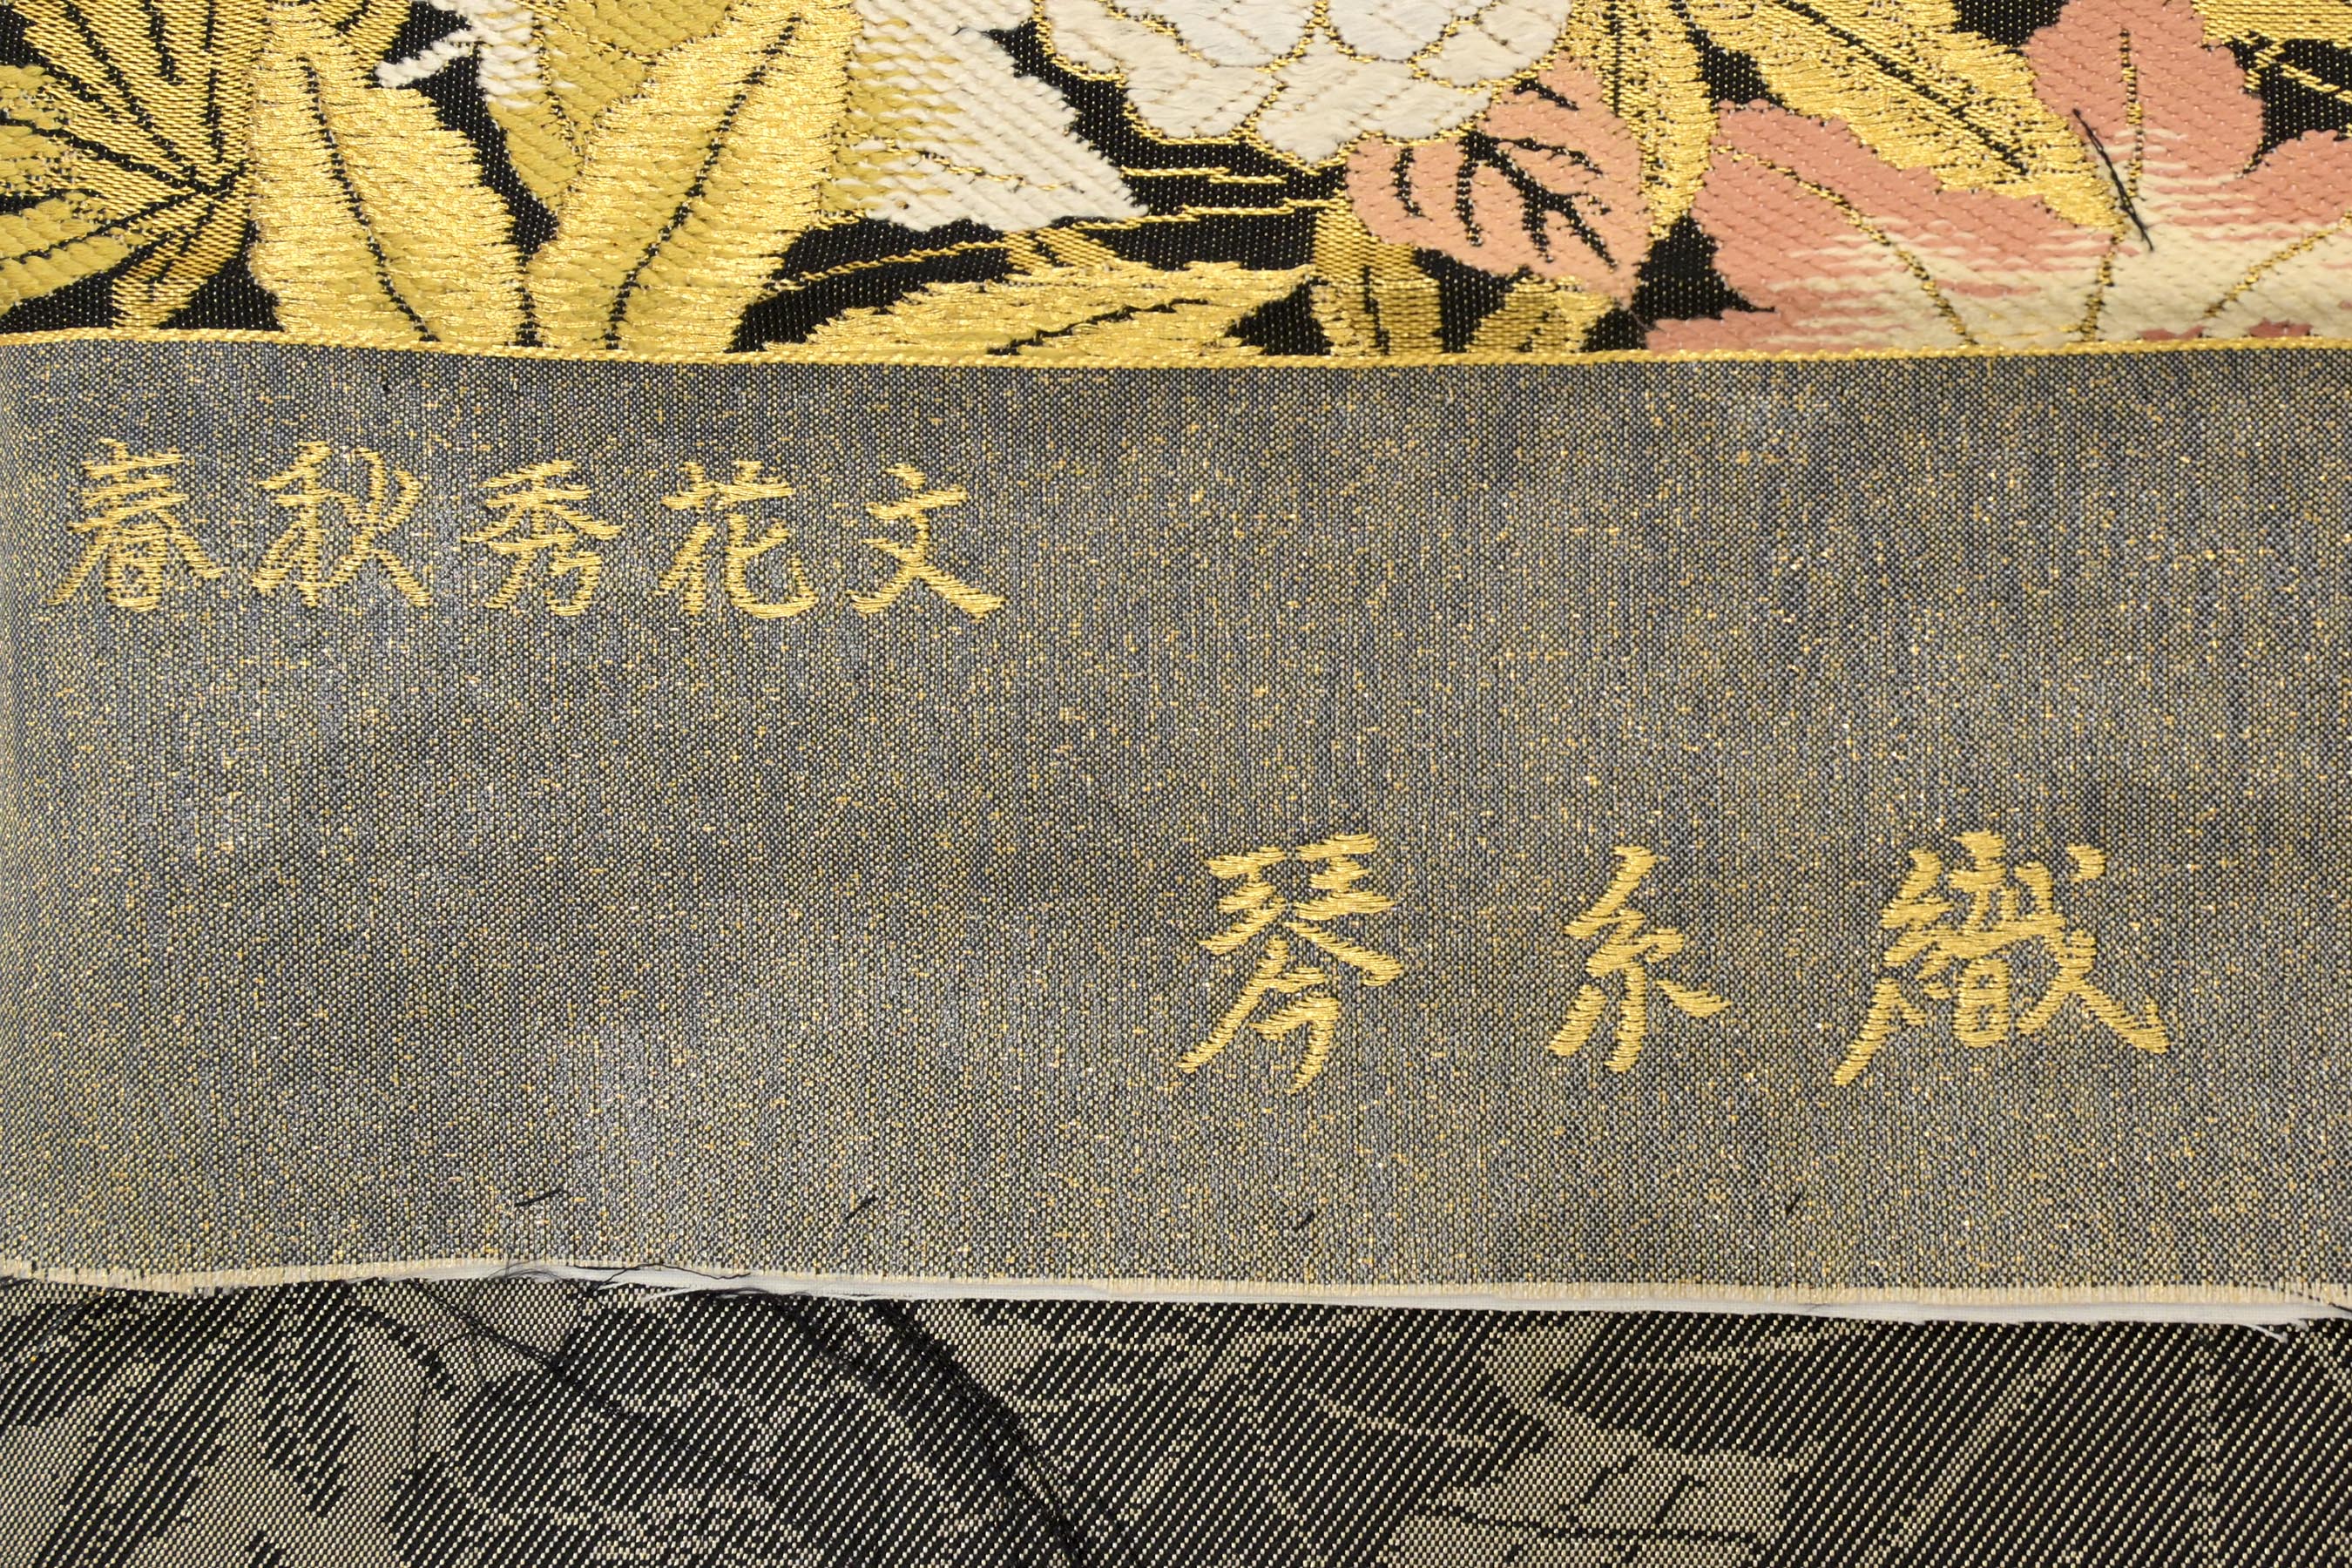 春秋秀花文
琴糸織